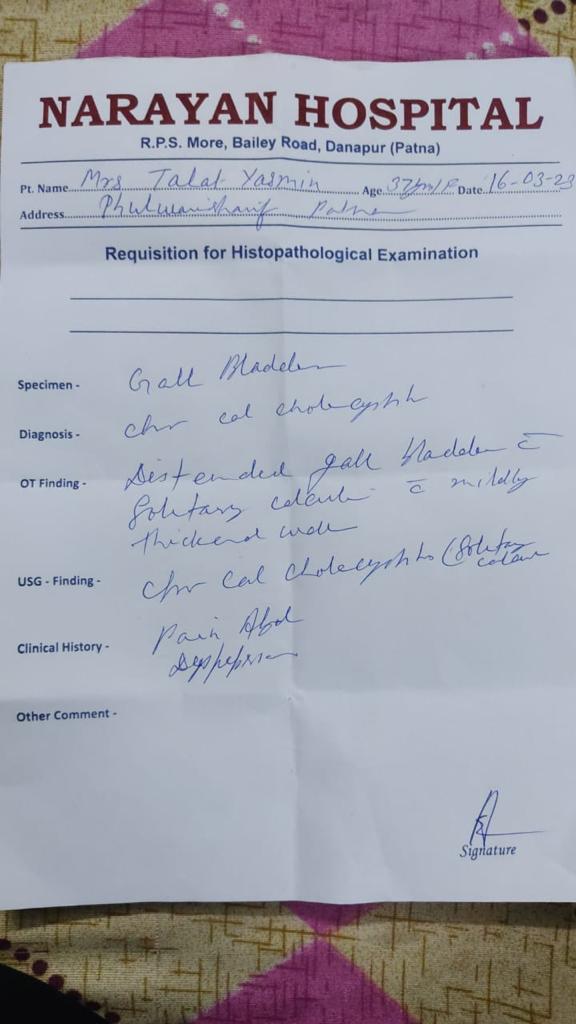 NARAYAN HOSPITAL
R.P.S. More, Bailey Road, Danapur (Patna)
Pt. Name Mrs Talat Yasmin Age 37yrs/F Date 16-03-23
Address Phulwarisharif Patna
Requisition for Histopathological Examination
Specimen - Gall Bladder
Diagnosis - chr cal cholecystitis
OT Finding - Distended gall bladder c̄
Solitary calculi c̄ mildly
thickend wall
USG - Finding - chr cal cholecystitis (Solitary
Clinical History - Pain Abd
Dyspepsia
Other Comment -
Signature